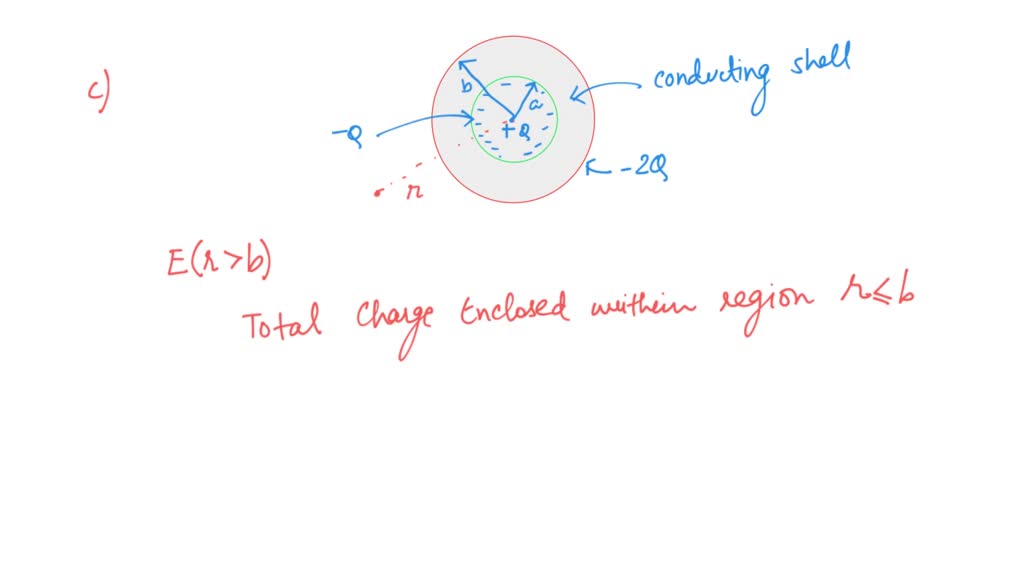 c)
conducting shell
b
a
-Q
+Q
-2Q
r
E(r>b)
Total Charge Enclosed withein region r≤b